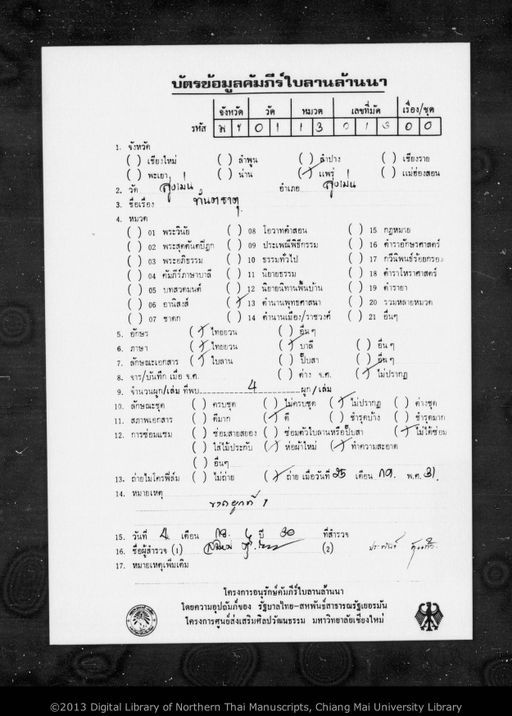 บัตรข้อมูลคัมภีร์ใบลานล้านนา
จังหวัด วัด หมวด เลขที่มัด เรื่อง/ชุด
รหัส พ ร 0 1 1 3 0 1 3 0 0
1. จังหวัด
( ) เชียงใหม่ ( ) ลำพูน ( ) ลำปาง ( ) เชียงราย
( ) พะเยา ( ) น่าน (/) แพร่ ( ) แม่ฮ่องสอน
2. วัด สูงเม่น อำเภอ สูงเม่น
3. ชื่อเรื่อง ทันตธาตุ
4. หมวด
( ) 01 พระวินัย ( ) 08 โอวาทคำสอน ( ) 15 กฎหมาย
( ) 02 พระสุตตันตปิฎก ( ) 09 ประเพณีพิธีกรรม ( ) 16 ตำราอักษรศาสตร์
( ) 03 พระอภิธรรม ( ) 10 ธรรมทั่วไป ( ) 17 กวีนิพนธ์ร้อยกรอง
( ) 04 คัมภีร์ภาษาบาลี ( ) 11 นิยายธรรม ( ) 18 ตำราโหราศาสตร์
( ) 05 บทสวดมนต์ ( ) 12 นิยายนิทานพื้นบ้าน ( ) 19 ตำรายา
( ) 06 อานิสงส์ (/) 13 ตำนานพุทธศาสนา ( ) 20 รวมหลายหมวด
( ) 07 ชาดก ( ) 14 ตำนานเมือง/ราชวงศ์ ( ) 21 อื่นๆ
5. อักษร (/) ไทยยวน ( ) อื่นๆ
6. ภาษา (/) ไทยยวน (/) บาลี ( ) อื่นๆ
7. ลักษณะเอกสาร (/) ใบลาน ( ) พับสา ( ) อื่นๆ
8. จาร/บันทึก เมื่อ จ.ศ. ( ) ต่าง จ.ศ. (/) ไม่ปรากฏ
9. จำนวนผูก/เล่ม ที่พบ 4 ผูก/เล่ม
10. ลักษณะชุด ( ) ครบชุด ( ) ไม่ครบชุด (/) ไม่ปรากฏ ( ) ต่างชุด
11. สภาพเอกสาร ( ) ดีมาก (/) ดี ( ) ชำรุดบ้าง ( ) ชำรุดมาก
12. การซ่อมแซม ( ) ซ่อมสายสยอง ( ) ซ่อมตัวใบลานหรือปั๊บสา (/) ไม่ได้ซ่อม
( ) ใส่ไม้ประกับ (/) ห่อผ้าใหม่ (/) ทำความสะอาด
( ) อื่นๆ
13. ถ่ายไมโครฟิล์ม ( ) ไม่ถ่าย (/) ถ่าย เมื่อวันที่ 25 เดือน กย. พ.ศ. 31
14. หมายเหตุ
ขาดผูกที่ 1
15. วันที่ 4 เดือน ปี 30 ที่สำรวจ
16. ชื่อผู้สำรวจ (1) (2)
17. หมายเหตุเพิ่มเติม
โครงการอนุรักษ์คัมภีร์ใบลานล้านนา
โดยความอุปถัมภ์ของ รัฐบาลไทย-สหพันธ์สาธารณรัฐเยอรมัน
โครงการศูนย์ส่งเสริมศิลปวัฒนธรรม มหาวิทยาลัยเชียงใหม่
©2013 Digital Library of Northern Thai Manuscripts, Chiang Mai University Library